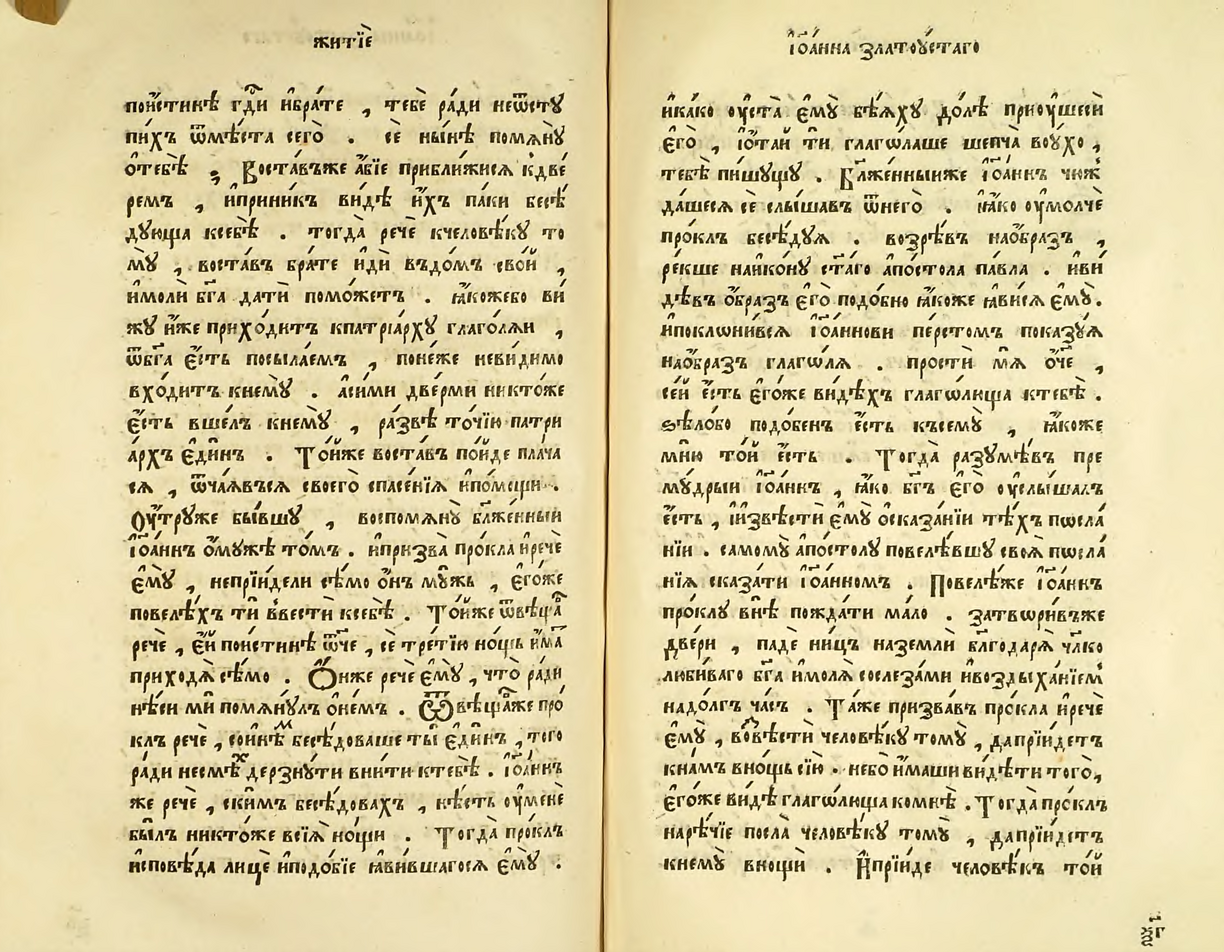 житїѐ
пои́стинѣ гди ѝбра́те , тебѐ ра́ди неѿстꙋ
пи́хъ ѿмѣ́ста сегѡ̀ . сѐ ны́нѣ помѧнꙋ̀
ѻтебѣ̀ , Воста́въже а́бїе прибли́жисѧ кдве́
ремъ , ѝприни́къ ви́дѣ и́хъ па́ки бесѣ́
дꙋюща ксебѣ̀ . тогда̀ речѐ кчеловѣ́кꙋ то
мꙋ̀ , воста́въ бра́те идѝ въдо́мъ сво́й ,
ѝмолѝ бга да́ти помо́жетъ . ꙗ́кожебо ви́
жꙋ и́же прихо́дитъ кпатрїа́рхꙋ глаго́лѧи ,
ѿбга є́сть посыла́емъ , поне́же неви́димо
вхо́дитъ кнемꙋ̀ . аси́ми две́рми никто́же
є́сть вше́лъ кнемꙋ̀ , ра́звѣ то́чїю патри
а́рхъ єди́нъ . То́йже воста́въ по́йде пла́ча
сѧ , ѿча́ѧвъсѧ своего̀ спасе́нїѧ ѝпо́мощи .
Оу҆́трꙋже бы́вшꙋ , воспомѧнꙋ̀ бл҃же́нный
їѡ҃а́ннъ ѻмꙋ́жѣ то́мъ . ѝпризва̀ про́кла ѝречѐ
є҆мꙋ̀ , непрїи́дели сѣ́мо о́нъ мꙋ́жь , є҆го́же
повелѣ́хъ тѝ ввестѝ ксебѣ̀ . То́йже ѿвѣща́
речѐ , є҆́й пои́стинѣ ѿ҆́че , сѐ тре́тїю но́щь и́ма
приходѧ̀ сѣ́мо . Ѻ́нже речѐ є҆мꙋ̀ , что̀ ра́ди
нѣ́си мѝ помѧнꙋ́лъ ѻне́мъ . Ѿвѣща́же про́
клъ речѐ , сѻи́нѣм бесѣ́доваше ты̀ є҆ди́нъ , того̀
ра́ди несмѣ́х дерзнꙋ́ти вни́ти ктебѣ̀ . їѡ҃а́ннъ
же речѐ , ски́мъ бесѣ́довахъ , нѣ́сть оу҆менѐ
бы́лъ никто́же всїѧ̀ но́щи . Тогда̀ про́клъ
и҆сповѣ́да лицѐ ѝподо́бїе ꙗ҆́вившагосѧ є҆мꙋ̀ .
їѡ҃а́нна златоꙋ́стаго
ѝка́ко оу҆ста̀ є҆мꙋ̀ бѣ́ѧхꙋ до́лѣ приоу҆́шесѝ
є҆го̀ , їѻта́й тѝ глаго́лаше шепча̀ воу҆́хо ,
тебѣ̀ пи́шꙋщꙋ . Бл҃же́нныйже їѡ҃а́ннъ чю́ж
да́шесѧ сѐ слы́шавъ ѿнего̀ . ꙗ҆́ко оу҆молчѐ
про́клъ бесѣ́дꙋѧ . возрѣ́въ наѻ́бразъ ,
ре́кше наико́нꙋ ст҃а́го апо́стола па́вла . ѝви́
дѣвъ ѻ́бразъ є҆го̀ подо́бно ꙗ҆́коже ꙗ҆ви́сѧ є҆мꙋ̀ .
ѝпоклони́всѧ їѡ҃а́ннови пе́рстомъ показꙋ́ѧ
наѻ́бразъ глаго́лѧ . простѝ мѧ̀ ѻ́че ,
се́й є҆́сть є҆го́же ви́дѣхъ глаго́люща ктебѣ̀ .
ѕѣло́бо подо́бенъ є҆́сть късемꙋ̀ , ꙗ҆́коже
мню̀ то́й є҆́сть . Тогда̀ разꙋмѣ́въ пре
мꙋ́дрый їѡ҃а́ннъ , ꙗ҆́ко бг҃ъ є҆го̀ оу҆слы́шалъ
є҆́сть , ѝи҆звѣстѝ є҆мꙋ̀ ѻсказа́нїи тѣ́хъ посла́
нїи . самомꙋ̀ апо́столꙋ повелѣ́вшꙋ своѧ̀ посла́
нїѧ сказа́ти їѡ҃а́нномъ . Повелѣ́же їѡ҃а́ннъ
про́клꙋ внѣ̀ пожда́ти ма́ло . Затвори́въже
две́ри , падѐ ни́цъ наземлѝ бл҃годарѧ̀ чл҃ко
люби́ваго бг҃а ѝмолѧ̀ сослеза́ми ѝвоздыха́нїем
надо́лгъ ча́съ . Та́же призва́въ про́кла ѝречѐ
є҆мꙋ̀ , возвѣстѝ человѣ́кꙋ томꙋ̀ , дапрїи́детъ
кна́мъ вно́щь сїю̀ . не́бо и́маши ви́дѣти того̀ ,
є҆го́же ви́дѣ глаго́люща комнѣ̀ . Тогда̀ про́клъ
нарѣ́чїе посла̀ человѣ́кꙋ томꙋ̀ , дапрїи́детъ
кнемꙋ̀ вно́щи . Ѝпрїи́де человѣ́къ то́й